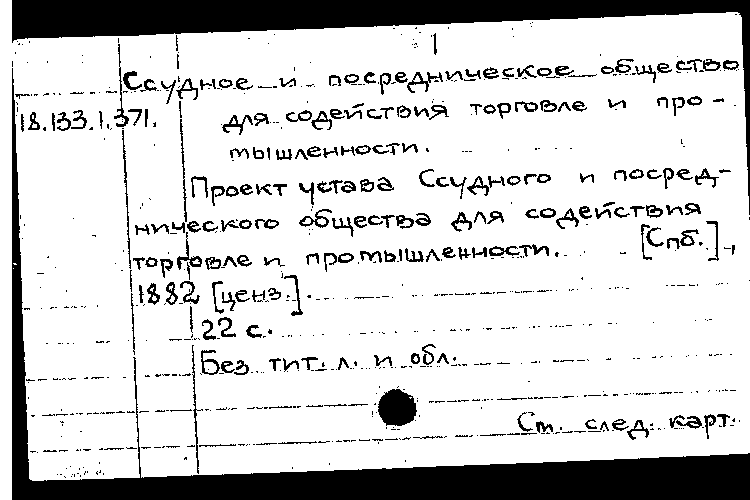 1
Ссудное и посредническое общество
18.133.1.371. для содействия торговле и про-
мышленности.
Проект устава Ссудного и посред-
нического общества для содействия
торговле и промышленности. [Спб.],
1882 [ценз.].
22 с.
Без тит. л. и обл.
См. след. карт.